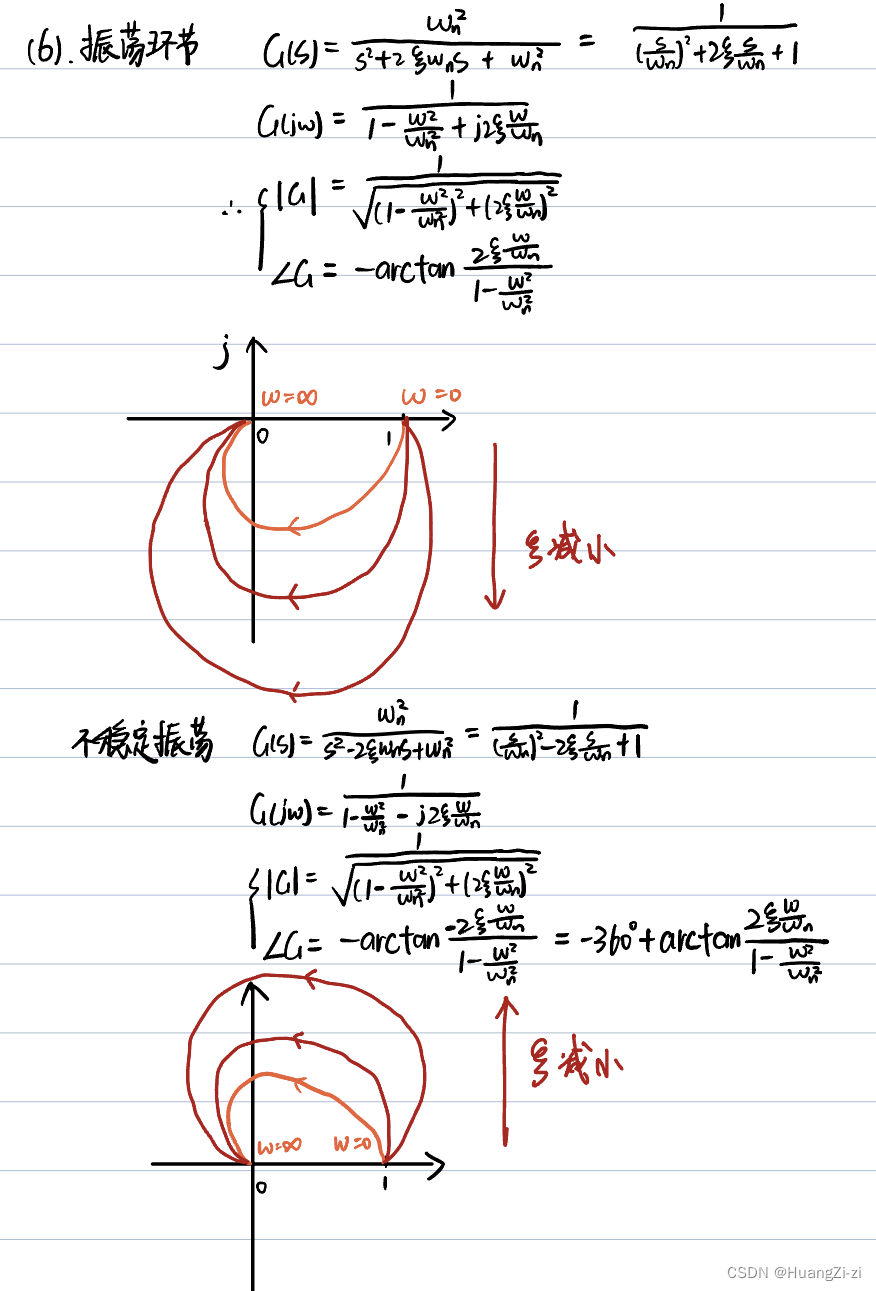 (6). 振荡环节 G(s) = ωn² / (s²+2ξωns + ωn²) = 1 / ((s/ωn)²+2ξ s/ωn + 1)
G(jω) = 1 / (1 - ω²/ωn² + j2ξ ω/ωn)
∴ { |G| = 1 / √((1-ω²/ωn²)²+(2ξ ω/ωn)²)
∠G = -arctan (2ξ ω/ωn) / (1-ω²/ωn²)
j
ω=∞ ω=0
0 1
ξ减小
不稳定振荡 G(s) = ωn² / (s²-2ξωns+ωn²) = 1 / ((s/ωn)²-2ξ s/ωn +1)
G(jω) = 1 / (1-ω²/ωn² - j2ξ ω/ωn)
{ |G| = 1 / √((1-ω²/ωn²)²+(2ξ ω/ωn)²)
∠G = -arctan (-2ξ ω/ωn) / (1-ω²/ωn²) = -360°+arctan (2ξ ω/ωn) / (1-ω²/ωn²)
ξ减小
ω=∞ ω=0
0 1
CSDN @HuangZi-zi